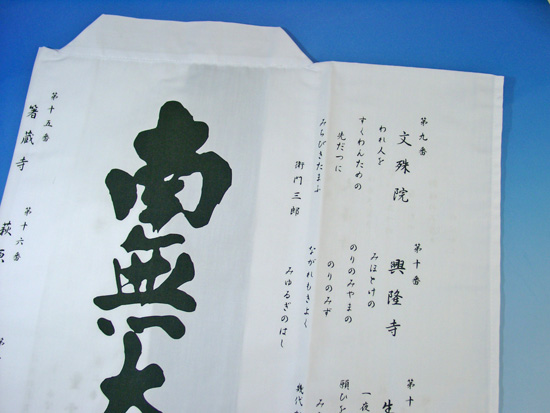 第九番
文殊院
われ人を
すくわんための
先だつに
みちびきたまふ
衛門三郎
第十番
興隆寺
みほとけの
のりのみやまの
のりのみず
ながれもきよく
みゆるぎのはし
第十
生
一夜
願ひを
南無大
第十五番
箸蔵寺
第十六番
萩原